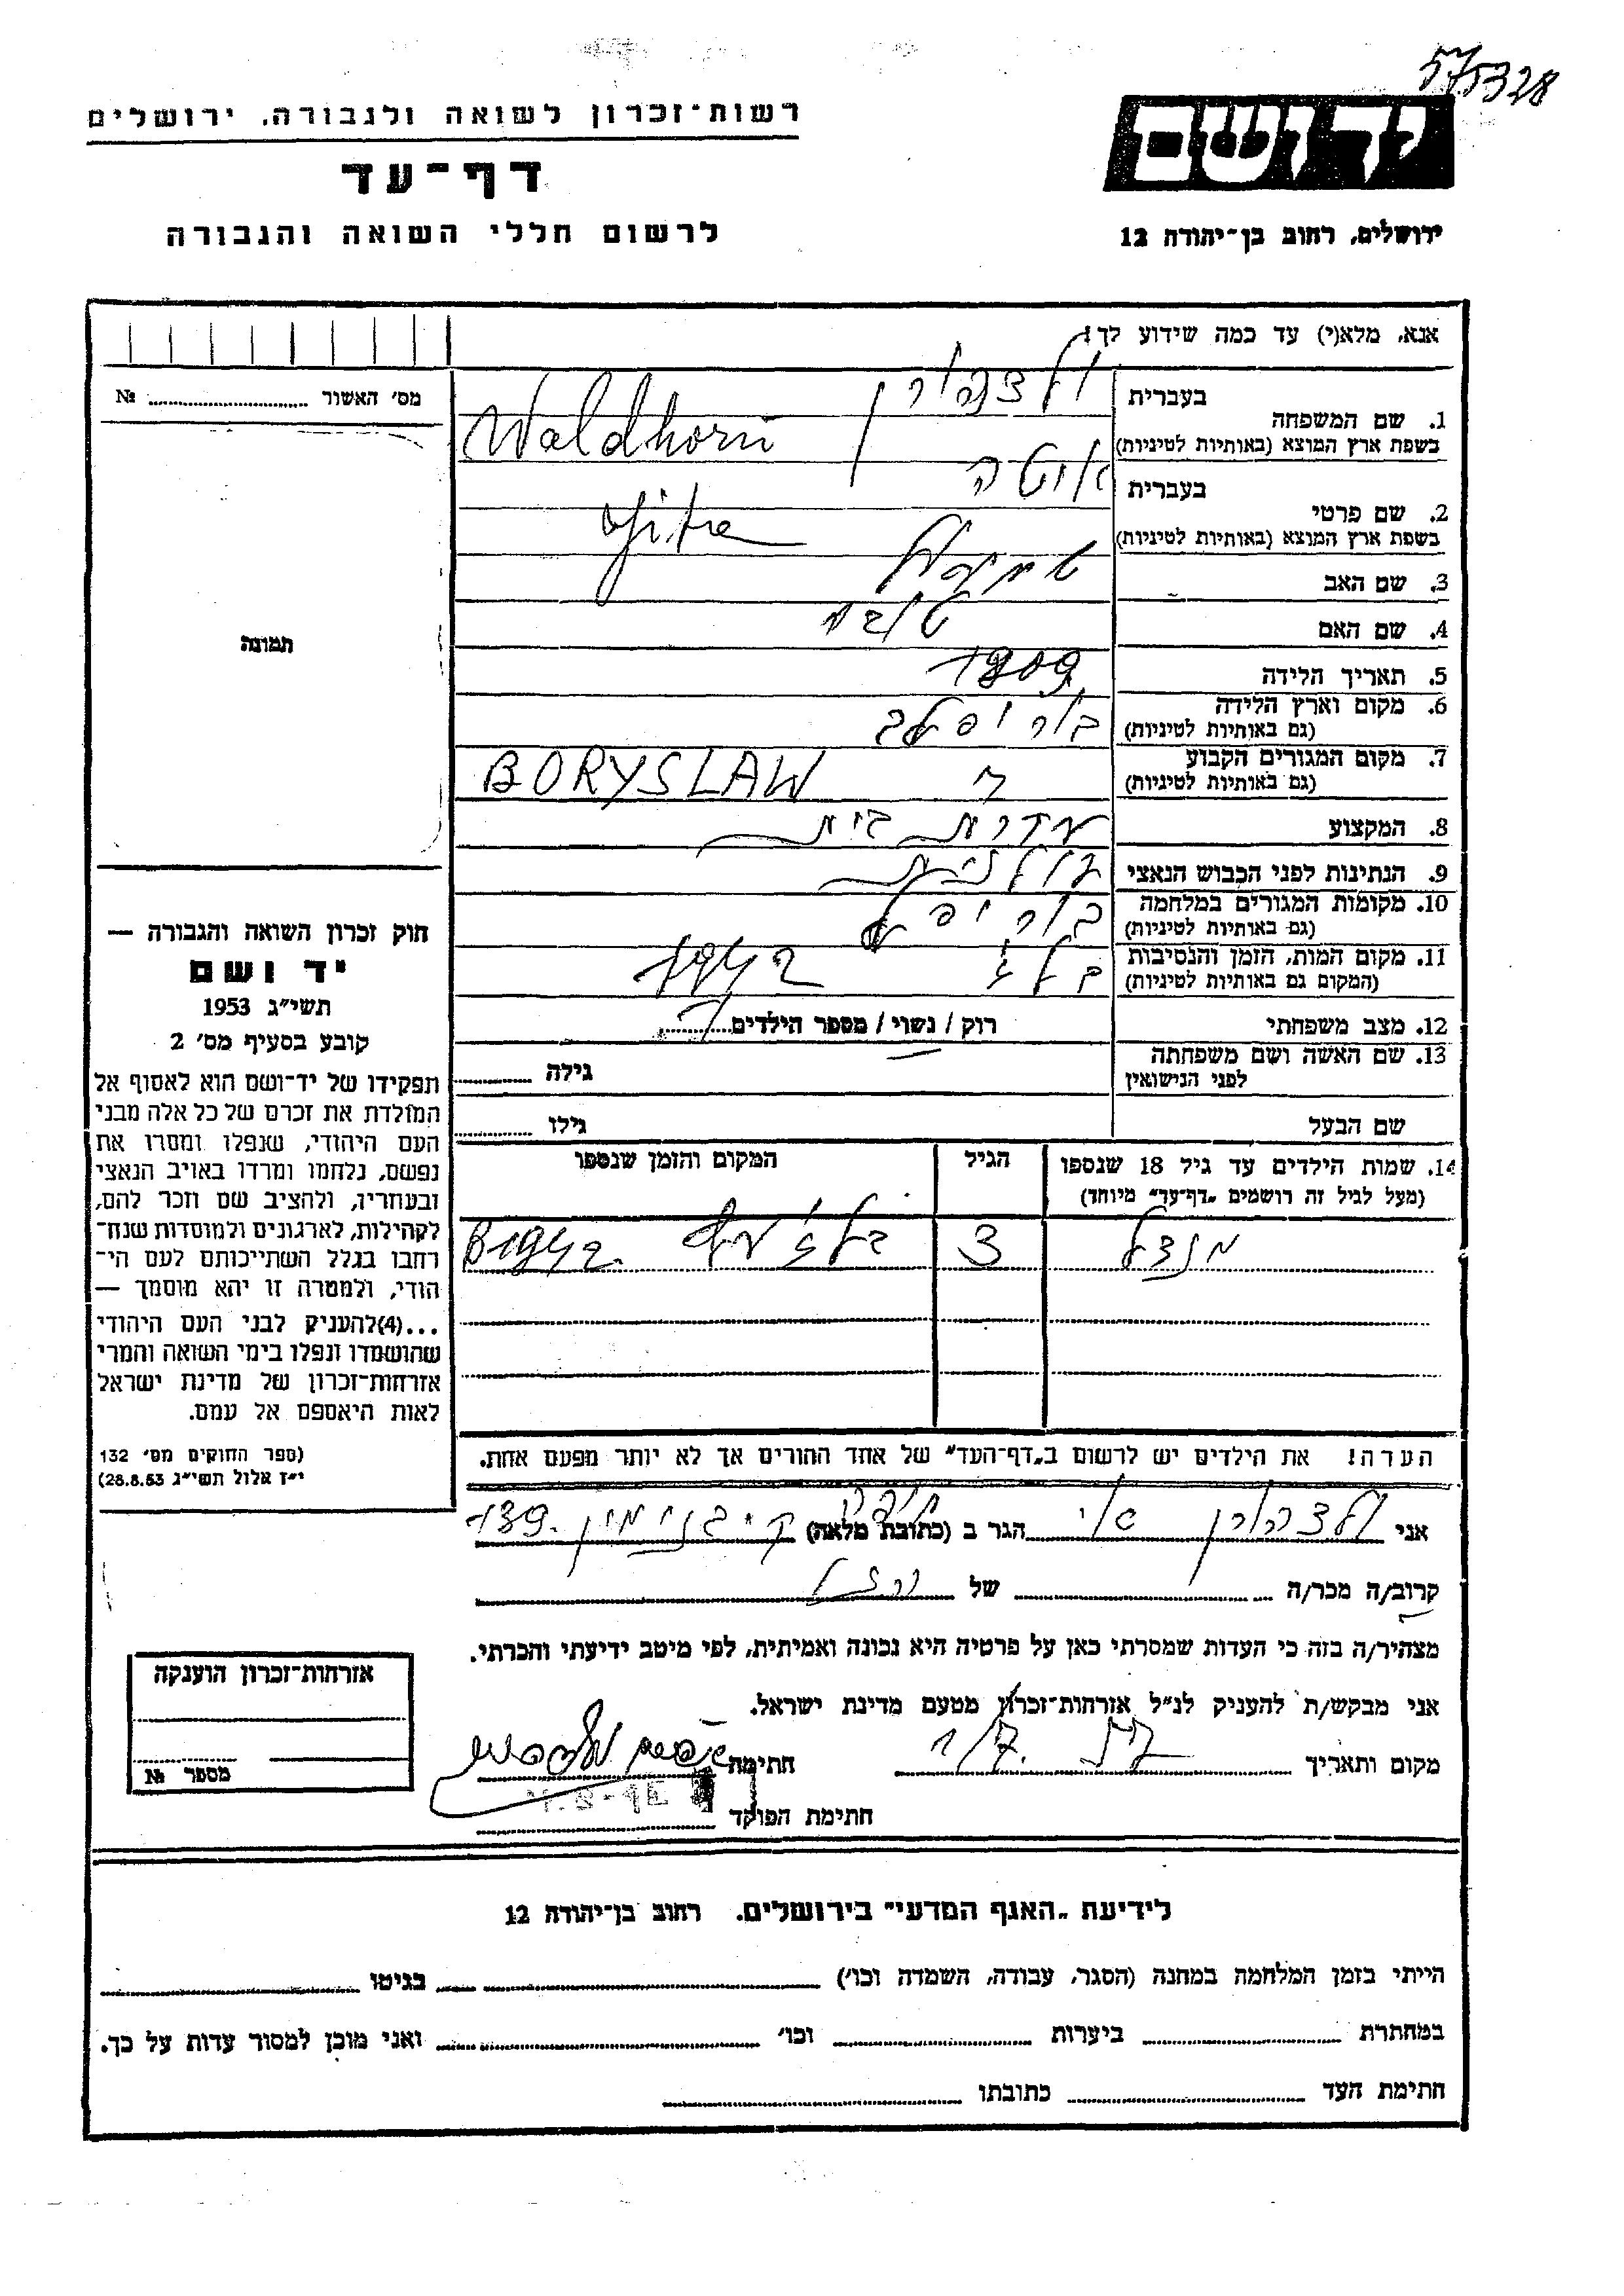 575328
רשות-זכרון לשואה ולגבורה, ירושלים
יד ושם
דף-עד
לרשום חללי השואה והגבורה
ירושלים, רחוב בן-יהודה 12
אנא, מלא(י) עד כמה שידוע לך!
מס' האשור № 
1. שם המשפחה
בעברית ולדהורן
בשפת ארץ המוצא (באותיות לטיניות) Waldhorn
2. שם פרטי
בעברית
בשפת ארץ המוצא (באותיות לטיניות)
3. שם האב
4. שם האם טובה
5. תאריך הלידה 1909
6. מקום וארץ הלידה בוריסלב
(גם באותיות לטיניות)
7. מקום המגורים הקבוע BORYSLAW
(גם באותיות לטיניות)
8. המקצוע עקרת בית
9. הנתינות לפני הכבוש הנאצי פולנית
10. מקומות המגורים במלחמה בוריסלב
(גם באותיות לטיניות)
11. מקום המות, הזמן והנסיבות 1942
(המקום גם באותיות לטיניות)
12. מצב משפחתי רוק / נשוי / מספר הילדים
13. שם האשה ושם משפחתה
לפני הנישואין
גילה
שם הבעל גילו
14. שמות הילדים עד גיל 18 שנספו
(מעל לגיל זה רושמים "דף-עד" מיוחד)
הגיל
המקום והזמן שנספו
מנדל 3 1942
הערה! את הילדים יש לרשום ב"דף-העד" של אחד ההורים אך לא יותר מפעם אחת.
תמונה
חוק זכרון השואה והגבורה —
יד ושם
תשי"ג 1953
קובע בסעיף מס' 2
תפקידו של יד-ושם הוא לאסוף אל
המולדת את זכרם של כל אלה מבני
העם היהודי, שנפלו ומסרו את
נפשם, נלחמו ומרדו באויב הנאצי
ובעוזריו, ולהציב שם וזכר להם,
לקהילות, לארגונים ולמוסדות שנח-
רחבו בגלל השתייכותם לעם הי-
הודי, ולמטרה זו יהא מוסמך —
...(4)להעניק לבני העם היהודי
שהושמדו ונפלו בימי השואה והמרי
אזרחות-זכרון של מדינת ישראל
לאות היאספם אל עמם.
(ספר החוקים מס' 132
י"ז אלול תשי"ג 28.8.53)
אני ולדהורן הגר ב (כתובת מלאה) חיפה ק. בנימין 139
קרוב/ה מכר/ה של
מצהיר/ה בזה כי העדות שמסרתי כאן על פרטיה היא נכונה ואמיתית, לפי מיטב ידיעתי והכרתי.
אני מבקש/ת להעניק לנ"ל אזרחות-זכרון מטעם מדינת ישראל.
מקום ותאריך חתימה
חתימת הפוקד
אזרחות-זכרון הוענקה
מספר №
לידיעת "האגף המדעי" בירושלים. רחוב בן-יהודה 12
הייתי בזמן המלחמה במחנה (הסגר, עבודה, השמדה וכו') בגיטו
במחתרת ביערות וכו' ואני מוכן למסור עדות על כך.
חתימת העד כתובתו